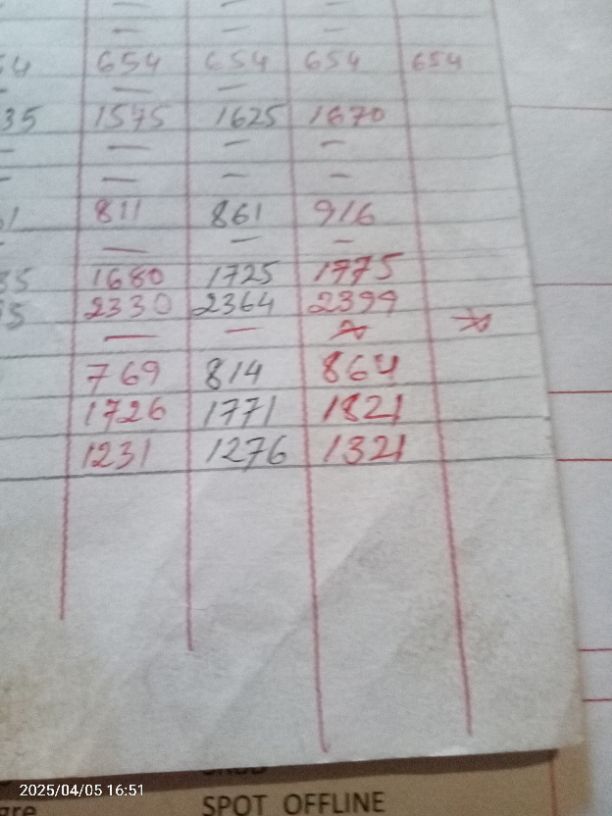 — — —
— — —
54 654 654 654 654
— — —
35 1575 1625 1670
— — — —
— — — —
61 811 861 916
— — — —
35 1680 1725 1775
95 2330 2364 2399
— —
769 814 864
1726 1771 1821
1231 1276 1321
2025/04/05 16:51
SPOT OFFLINE